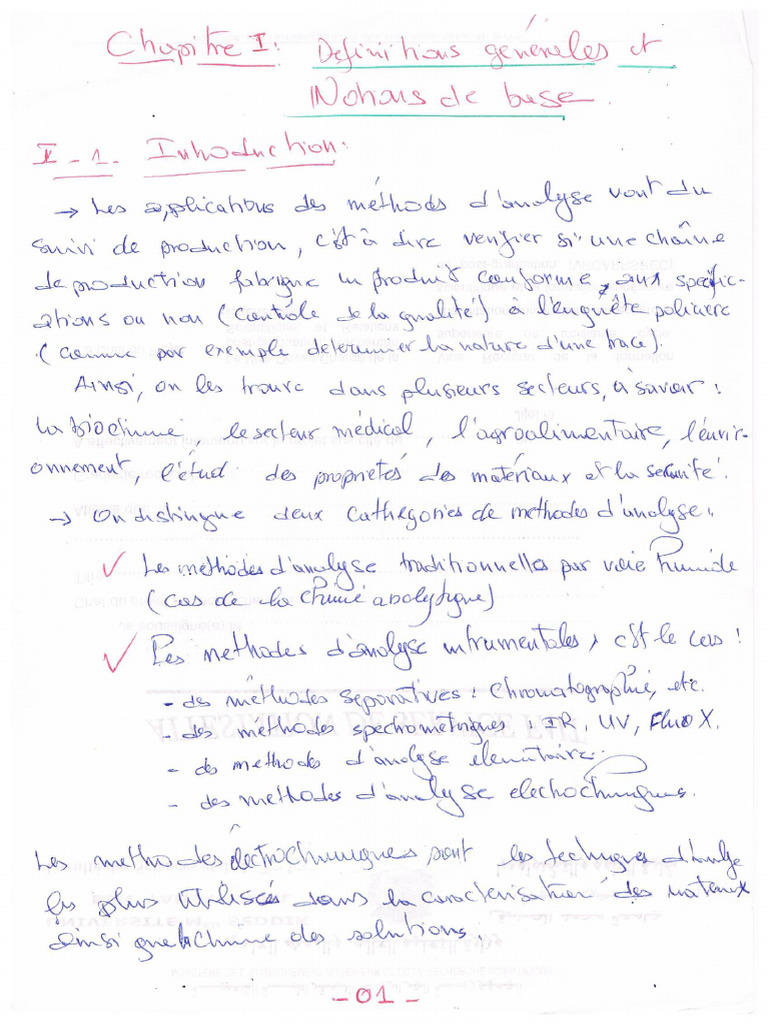 Chapitre I: Définitions générales et
Notions de base.
I - 1. Introduction:
→ Les applications des méthodes d'analyse vont du
suivi de production, c'est à dire verifier si une chaîne
de production fabrique un produit conforme aux spécific-
ations ou non (contrôle de la qualité) à l'enquête policière
(comme par exemple determiner la nature d'une trace).
Ainsi, on les trouve dans plusieurs secteurs, à savoir :
la biochimie, le secteur médical, l'agroalimentaire, l'envir-
onnement, l'étude des propriétés des matériaux et la securité.
→ On distingue deux cathégories de methodes d'analyse:
✓ Les méthodes d'analyse traditionnelles par voie humide
(cas de la chimie analytique)
✓ Les methodes d'analyse intrumentales, c'est le cas :
- des méthodes séparatives : chromatographie, etc.
- des méthodes spectrométriques IR, UV, Fluo X.
- des methodes d'analyse elementaire.
- des methodes d'analyse electrochimiques.
Les methodes électrochimiques sont les techniques d'analyse
les plus utilisés dans la caractérisation des
ainsi que la chimie des solutions.
- 01 -